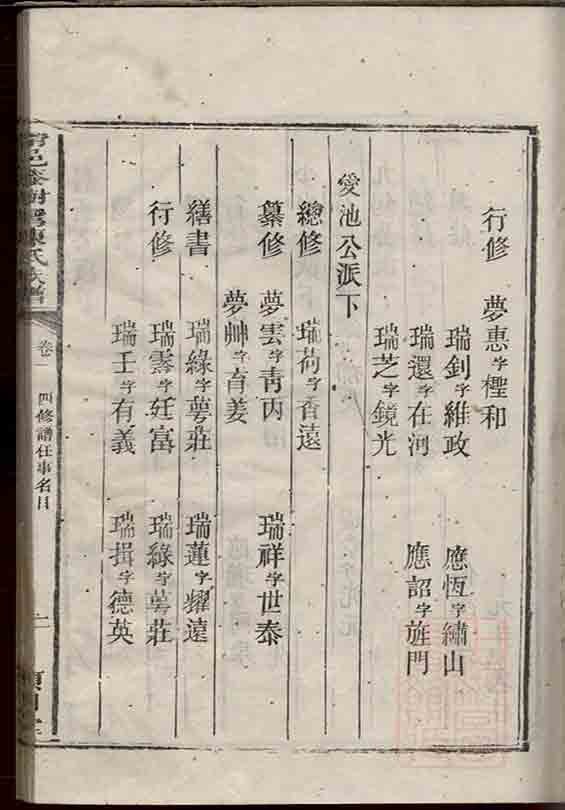 行修 夢惠字檉和
瑞釗字維政 應恆字繡山
瑞還字在河 應詔字旌門
瑞芝字鏡光
愛池公派下
總修 瑞荷字香遠
纂修 夢雲字青丙 瑞祥字世泰
夢帥字育姜
繕書 瑞緣字萼莊 瑞蓮字耀遠
行修 瑞雲字廷富 瑞緣字萼莊
瑞壬字有義 瑞揖字德英
陳氏族譜 卷一 四修譜任事名目